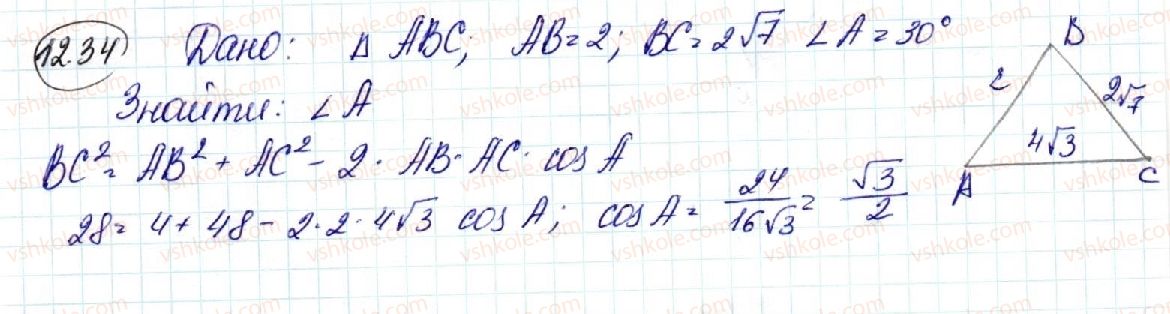 12.34 Дано: Δ ABC; AB = 2; BC = 2√7 ∠A = 30°
Знайти: ∠A
BC² = AB² + AC² - 2 · AB · AC · cos A
28 = 4 + 48 - 2·2·4√3 cos A; cos A = 24/16√3 = √3/2
B
2
2√7
4√3
A
C
vshkole.com